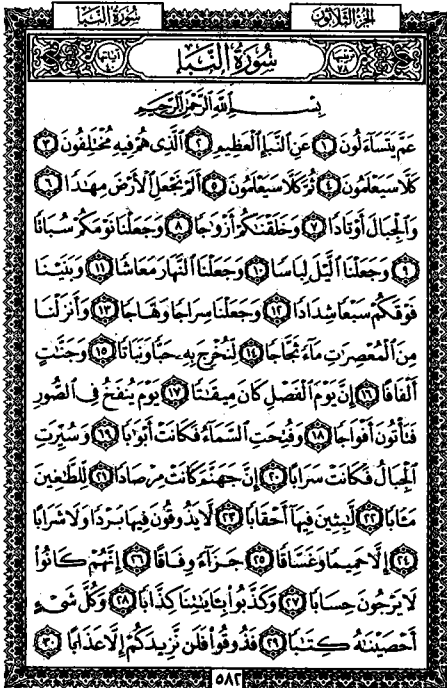 سُورَةُ النَّبَإِ الجُزْءُ الثَّلَاثُونَ
سُورَةُ النَّبَإِ
بِسْمِ اللَّهِ الرَّحْمَٰنِ الرَّحِيمِ
عَمَّ يَتَسَآءَلُونَ ١ عَنِ النَّبَإِ الْعَظِيمِ ٢ الَّذِى هُمْ فِيهِ مُخْتَلِفُونَ ٣
كَلَّا سَيَعْلَمُونَ ٤ ثُمَّ كَلَّا سَيَعْلَمُونَ ٥ أَلَمْ نَجْعَلِ الْأَرْضَ مِهَٰدًا ٦
وَالْجِبَالَ أَوْتَادًا ٧ وَخَلَقْنَٰكُمْ أَزْوَٰجًا ٨ وَجَعَلْنَا نَوْمَكُمْ سُبَاتًا
٩ وَجَعَلْنَا الَّيْلَ لِبَاسًا ١٠ وَجَعَلْنَا النَّهَارَ مَعَاشًا ١١ وَبَنَيْنَا
فَوْقَكُمْ سَبْعًا شِدَادًا ١٢ وَجَعَلْنَا سِرَاجًا وَهَّاجًا ١٣ وَأَنزَلْنَا
مِنَ الْمُعْصِرَٰتِ مَآءً ثَجَّاجًا ١٤ لِّنُخْرِجَ بِهِ حَبًّا وَنَبَاتًا ١٥ وَجَنَّٰتٍ
أَلْفَافًا ١٦ إِنَّ يَوْمَ الْفَصْلِ كَانَ مِيقَٰتًا ١٧ يَوْمَ يُنفَخُ فِى الصُّورِ
فَتَأْتُونَ أَفْوَاجًا ١٨ وَفُتِحَتِ السَّمَآءُ فَكَانَتْ أَبْوَٰبًا ١٩ وَسُيِّرَتِ
الْجِبَالُ فَكَانَتْ سَرَابًا ٢٠ إِنَّ جَهَنَّمَ كَانَتْ مِرْصَادًا ٢١ لِّلطَّٰغِينَ
مَـَٔابًا ٢٢ لَّٰبِثِينَ فِيهَآ أَحْقَابًا ٢٣ لَّا يَذُوقُونَ فِيهَا بَرْدًا وَلَا شَرَابًا
٢٤ إِلَّا حَمِيمًا وَغَسَّاقًا ٢٥ جَزَآءً وِفَاقًا ٢٦ إِنَّهُمْ كَانُوا۟
لَا يَرْجُونَ حِسَابًا ٢٧ وَكَذَّبُوا۟ بِـَٔايَٰتِنَا كِذَّابًا ٢٨ وَكُلَّ شَىْءٍ
أَحْصَيْنَٰهُ كِتَٰبًا ٢٩ فَذُوقُوا۟ فَلَن نَّزِيدَكُمْ إِلَّا عَذَابًا ٣٠
٥٨٢